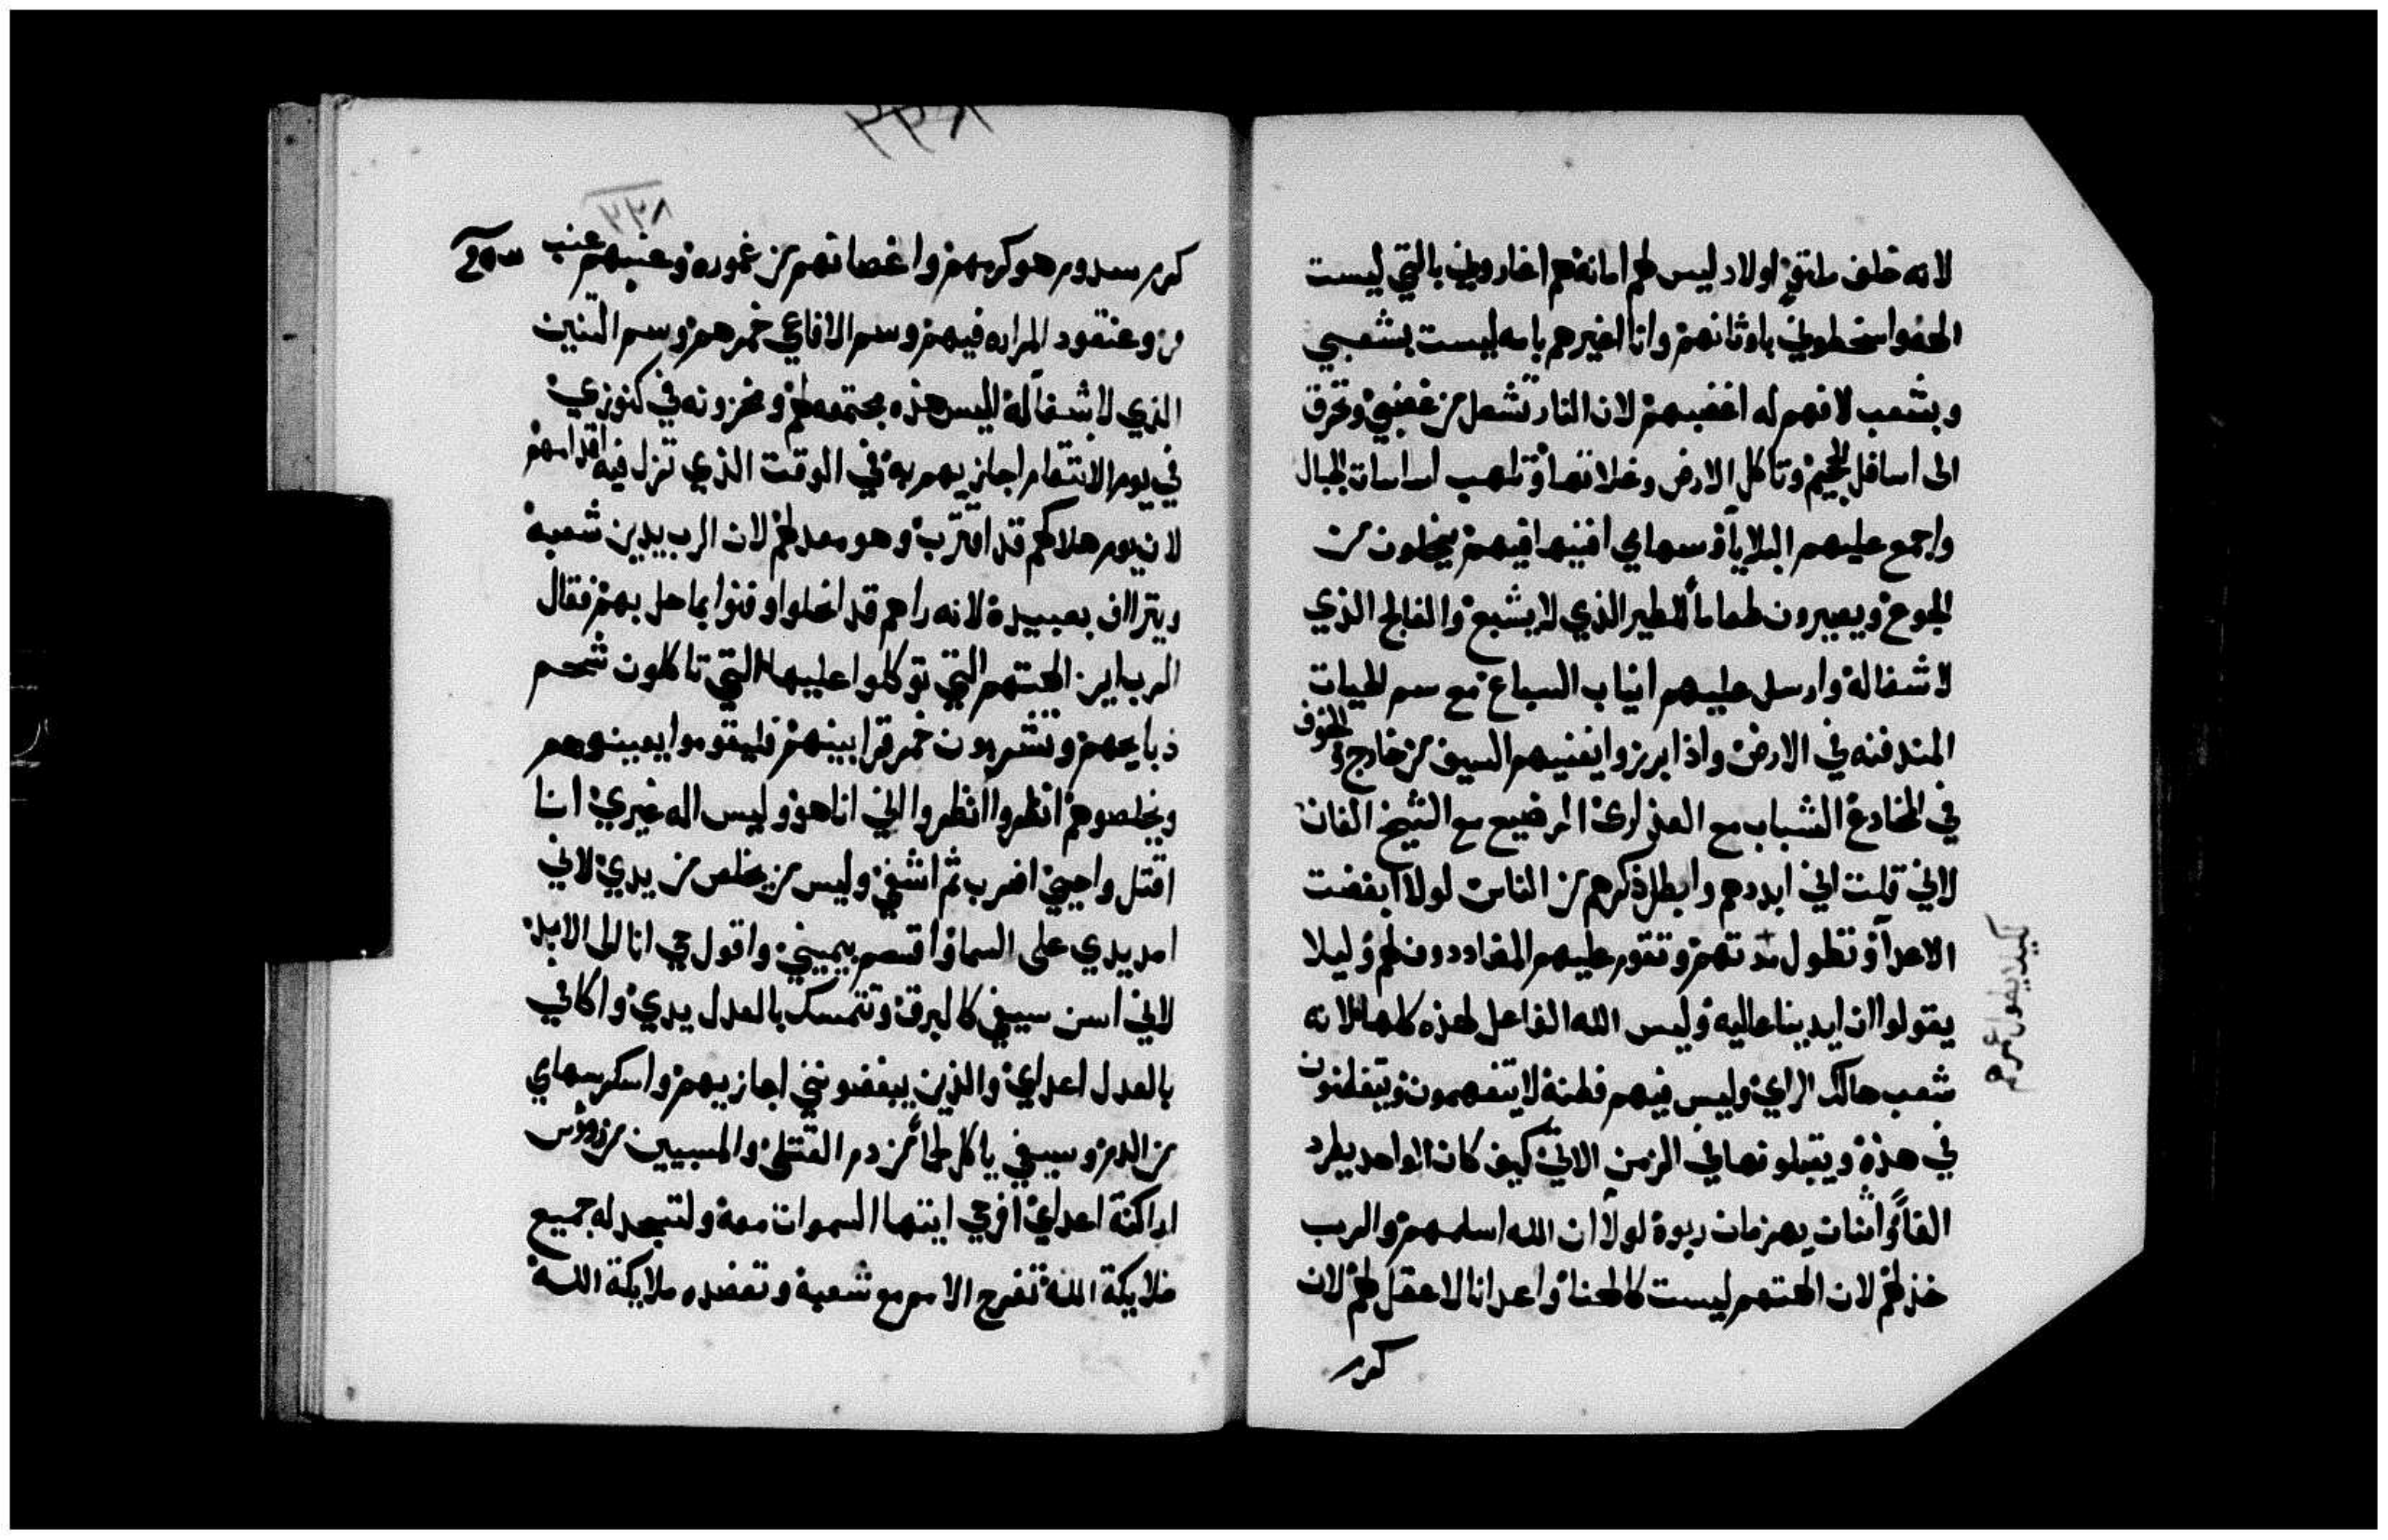 لانه خلف ملتوٍ اولاد ليس لهم امانة هم اغاروني بالتي ليست
الهه واسخطوني باوثانهم وانا اغيرهم بامه ليست بشعبي
وبشعب لا فهم له اغضبهم لان النار تشعل من غضبي وتحرق
الى اسافل الجحيم وتاكل الارض وغلاتها وتلهب اساسات الجبال
واجمع عليهم البلايا وسهامي افنيها فيهم ينحلون من
الجوع ويصيرون طعاماً للطير الذي لا يشبع والفالج الذي
لا شفا له وارسل عليهم انياب السباع مع سم الحيات
المندفنه في الارض واذا برزوا يفنيهم السيف من خارج والخوف
في المخادع الشباب مع العذارى المرضيع مع الشيخ الفان
لاني قلت اني ابددهم وابطل ذكرهم من الناس لولا ابغضت
الاعدآ وتطول مدتهم وتقوم عليهم المضاددون لهم وليلا
يقولوا ان ايدينا عاليه وليس الله الفاعل لهذه كلها لانه
شعب هالك الراي وليس فيهم فطنة لا يتفهمون ويتفطنون
في هذه ويقبلونها في الزمن الاتي كيف كان الواحد يطرد
الفاً واثنان يهزمان ربوة لولا ان الله اسلمهم والرب
خذلهم لان الهتهم ليست كالهنا واعدانا لا عقل لهم لان
كرم
كرم سدوم هو كرمهم واغصانهم من غموره وعنبهم عنب
مر وعنقود المراره فيهم وسم الافاعي خمرهم وسم التنين
الذي لا شفا له اليس هذه مجتمعه لهم ومخزونه في كنوزي
في يوم الانتقام اجازيهم به في الوقت الذي تزل فيه اقدامهم
لان يوم هلاكهم قد اقترب وهو معد لهم لان الرب يدين شعبه
ويتراف بعبيده لانه راهم قد انحلوا وفنوا بما حل بهم فقال
الرب اين الهتهم التي توكلوا عليها التي تاكلون شحم
ذبايحهم وتشربون خمر قرابينهم فليقوموا يعينوهم
ويخلصوهم انظروا انظروا اني انا هو وليس اله غيري انا
اقتل واحيي اضرب ثم اشفي وليس من يخلص من يدي لاني
امد يدي على السما واقسم بيميني واقول حي انا الى الابد
لاني اسن سيفي كالبرق وتتمسك بالعدل يدي واكافي
بالعدل اعداي والذين يبغضونني اجازيهم واسكر سهامي
من الدم وسيفي ياكل لحماً من دم القتلى والمسبيين من روس
اراكنة اعداي افرحي ايتها السموات معه ولتسجد له جميع
ملايكة الله تفرح الامم مع شعبه وتعضده ملايكة الله